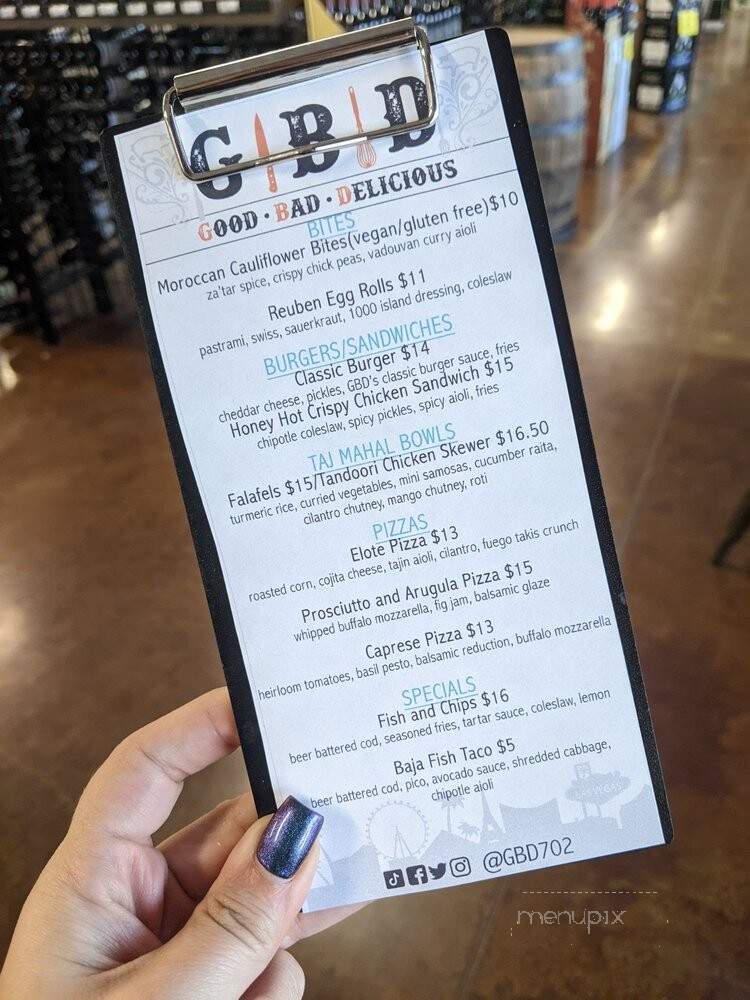 GBD
GOOD • BAD • DELICIOUS
BITES
Moroccan Cauliflower Bites(vegan/gluten free)$10
za'tar spice, crispy chick peas, vadouvan curry aioli
Reuben Egg Rolls $11
pastrami, swiss, sauerkraut, 1000 island dressing, coleslaw
BURGERS/SANDWICHES
Classic Burger $14
cheddar cheese, pickles, GBD's classic burger sauce, fries
Honey Hot Crispy Chicken Sandwich $15
chipotle coleslaw, spicy pickles, spicy aioli, fries
TAJ MAHAL BOWLS
Falafels $15/Tandoori Chicken Skewer $16.50
turmeric rice, curried vegetables, mini samosas, cucumber raita,
cilantro chutney, mango chutney, roti
PIZZAS
Elote Pizza $13
roasted corn, cojita cheese, tajin aioli, cilantro, fuego takis crunch
Prosciutto and Arugula Pizza $15
whipped buffalo mozzarella, fig jam, balsamic glaze
Caprese Pizza $13
heirloom tomatoes, basil pesto, balsamic reduction, buffalo mozzarella
SPECIALS
Fish and Chips $16
beer battered cod, seasoned fries, tartar sauce, coleslaw, lemon
Baja Fish Taco $5
beer battered cod, pico, avocado sauce, shredded cabbage,
chipotle aioli
LAS VEGAS
@GBD702
menupix